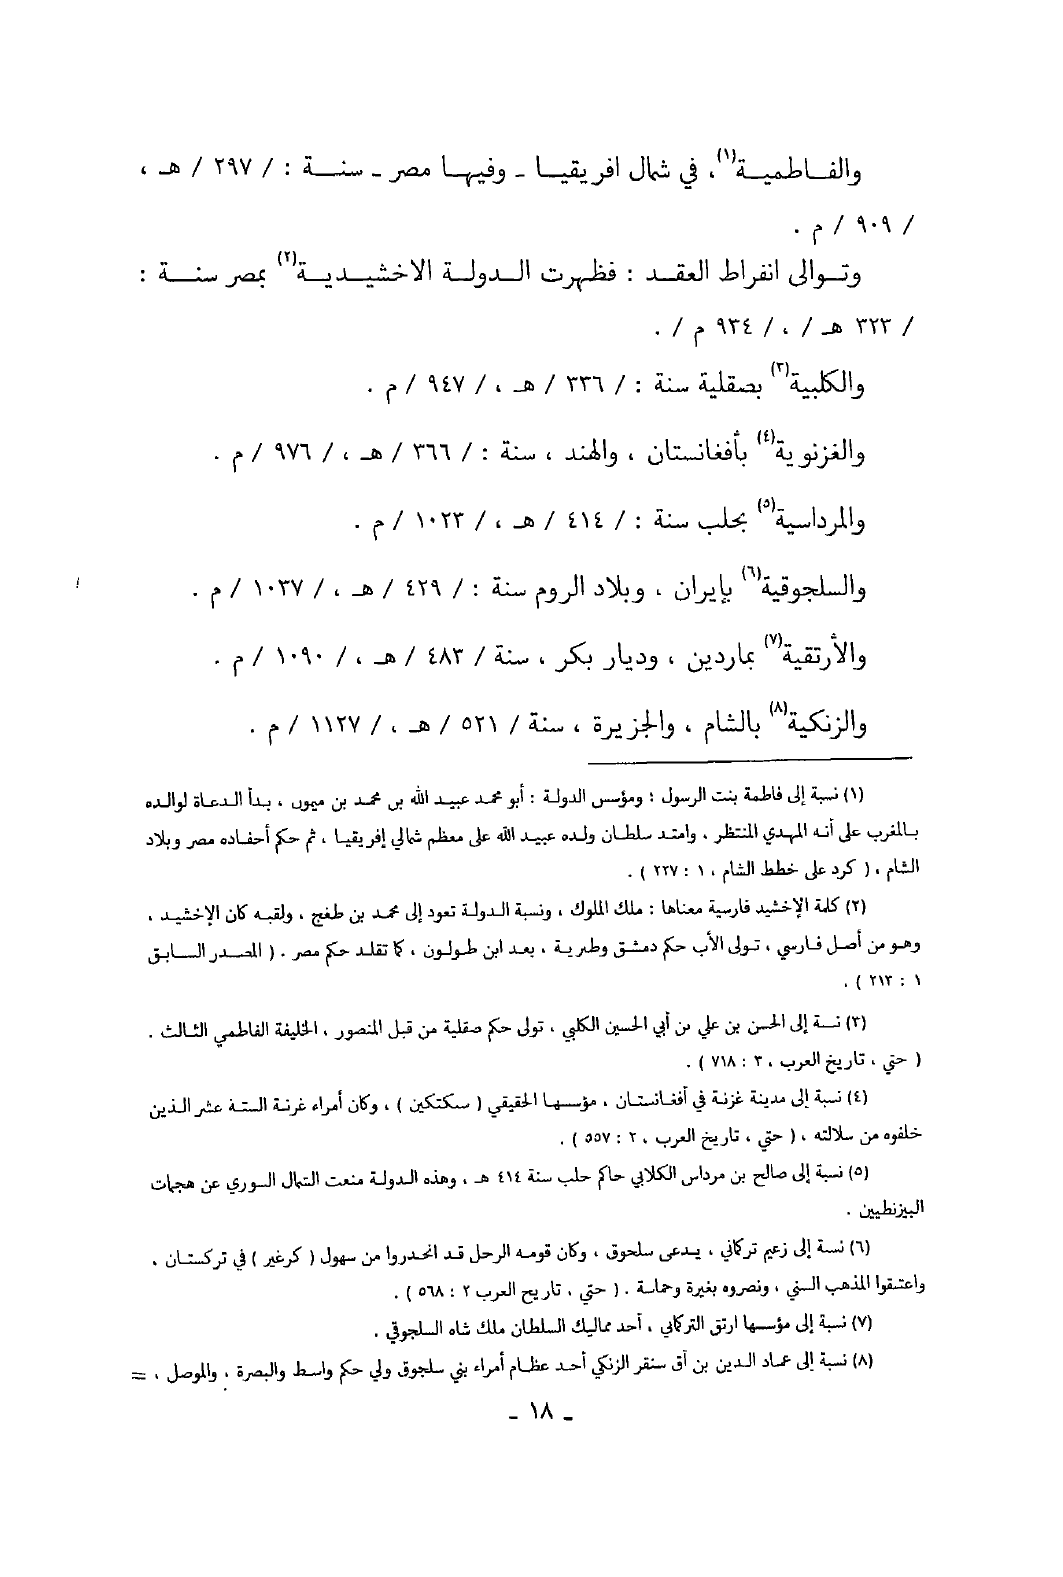 والفـاطميـة(١)، في شمال افريقيـا ـ وفيهـا مصر ـ سنـة : / ٢٩٧ / هـ ،
/ ٩٠٩ / م .
وتـوالى انفراط العقـد : فظهرت الـدولـة الاخشيـديـة(٢) بمصر سنـة :
/ ٣٢٣ هـ / ، / ٩٣٤ م / .
والكلبية(٣) بصقلية سنة : / ٣٣٦ / هـ ، / ٩٤٧ / م .
والغزنوية(٤) بأفغانستان ، والهند ، سنة : / ٣٦٦ / هـ ، / ٩٧٦ / م .
والمرداسية(٥) بحلب سنة : / ٤١٤ / هـ ، / ١٠٢٣ / م .
والسلجوقية(٦) بإيران ، وبلاد الروم سنة : / ٤٢٩ / هـ ، / ١٠٣٧ / م .
والأرتقية(٧) بماردين ، وديار بكر ، سنة / ٤٨٣ / هـ ، / ١٠٩٠ / م .
والزنكية(٨) بالشام ، والجزيرة ، سنة / ٥٢١ / هـ ، / ١١٢٧ / م .
(١) نسبة إلى فاطمة بنت الرسول ؛ ومؤسس الدولة : أبو محمد عبيد الله بن محمد بن ميمون ، بدأ الدعاة لوالده
بالمغرب على أنه المهدي المنتظر ، وامتد سلطان ولده عبيد الله على معظم شمالي إفريقيا ، ثم حكم أحفاده مصر وبلاد
الشام ، ( كرد علي خطط الشام ، ١ : ٢٢٧ ) .
(٢) كلمة الإخشيد فارسية معناها : ملك الملوك ، ونسبة الدولة تعود إلى محمد بن طغج ، ولقبه كان الإخشيد ،
وهو من أصل فارسي ، تولى الأب حكم دمشق وطبرية ، بعد ابن طولون ، كما تقلد حكم مصر . ( المصدر السابق
١ : ٢١٣ ) .
(٣) نسبة إلى الحسن بن علي بن أبي الحسين الكلبي ، تولى حكم صقلية من قبل المنصور ، الخليفة الفاطمي الثالث .
( حتي ، تاريخ العرب ، ٣ : ٧١٨ ) .
(٤) نسبة إلى مدينة غزنة في أفغانستان ، مؤسسها الحقيقي ( سبكتكين ) ، وكان أمراء غزنة الستة عشر الذين
خلفوه من سلالته ، ( حتي ، تاريخ العرب ، ٢ : ٥٥٧ ) .
(٥) نسبة إلى صالح بن مرداس الكلابي حاكم حلب سنة ٤١٤ هـ ، وهذه الدولة منعت الشمال السوري عن هجمات
البيزنطيين .
(٦) نسبة إلى زعيم تركماني ، يدعى سلجوق ، وكان قومه الرحل قد انحدروا من سهول ( كرغيز ) في تركستان ،
واعتنقوا المذهب السني ، ونصروه بغيرة وحماسة . ( حتي ، تاريخ العرب ٢ : ٥٦٨ ) .
(٧) نسبة إلى مؤسسها ارتق التركماني ، أحد مماليك السلطان ملك شاه السلجوقي .
(٨) نسبة إلى عماد الدين بن آق سنقر الزنكي أحد عظام أمراء بني سلجوق ولي حكم واسط والبصرة ، والموصل ، =
ـ ١٨ ـ